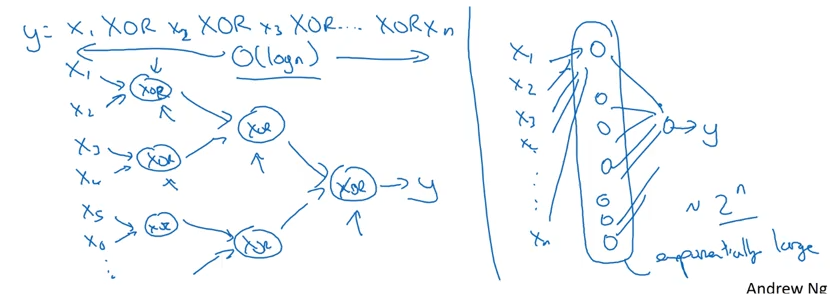 y= x₁ XOR x₂ XOR x₃ XOR.... XOR xₙ
O(logn)
x₁
x₂
XOR
x₃
x₄
XOR
XOR
x₅
x₆
⋮
XOR
XOR
XOR
y
x₁
x₂
x₃
x₄
⋮
xₙ
y
~ 2ⁿ
exponentially large
Andrew Ng